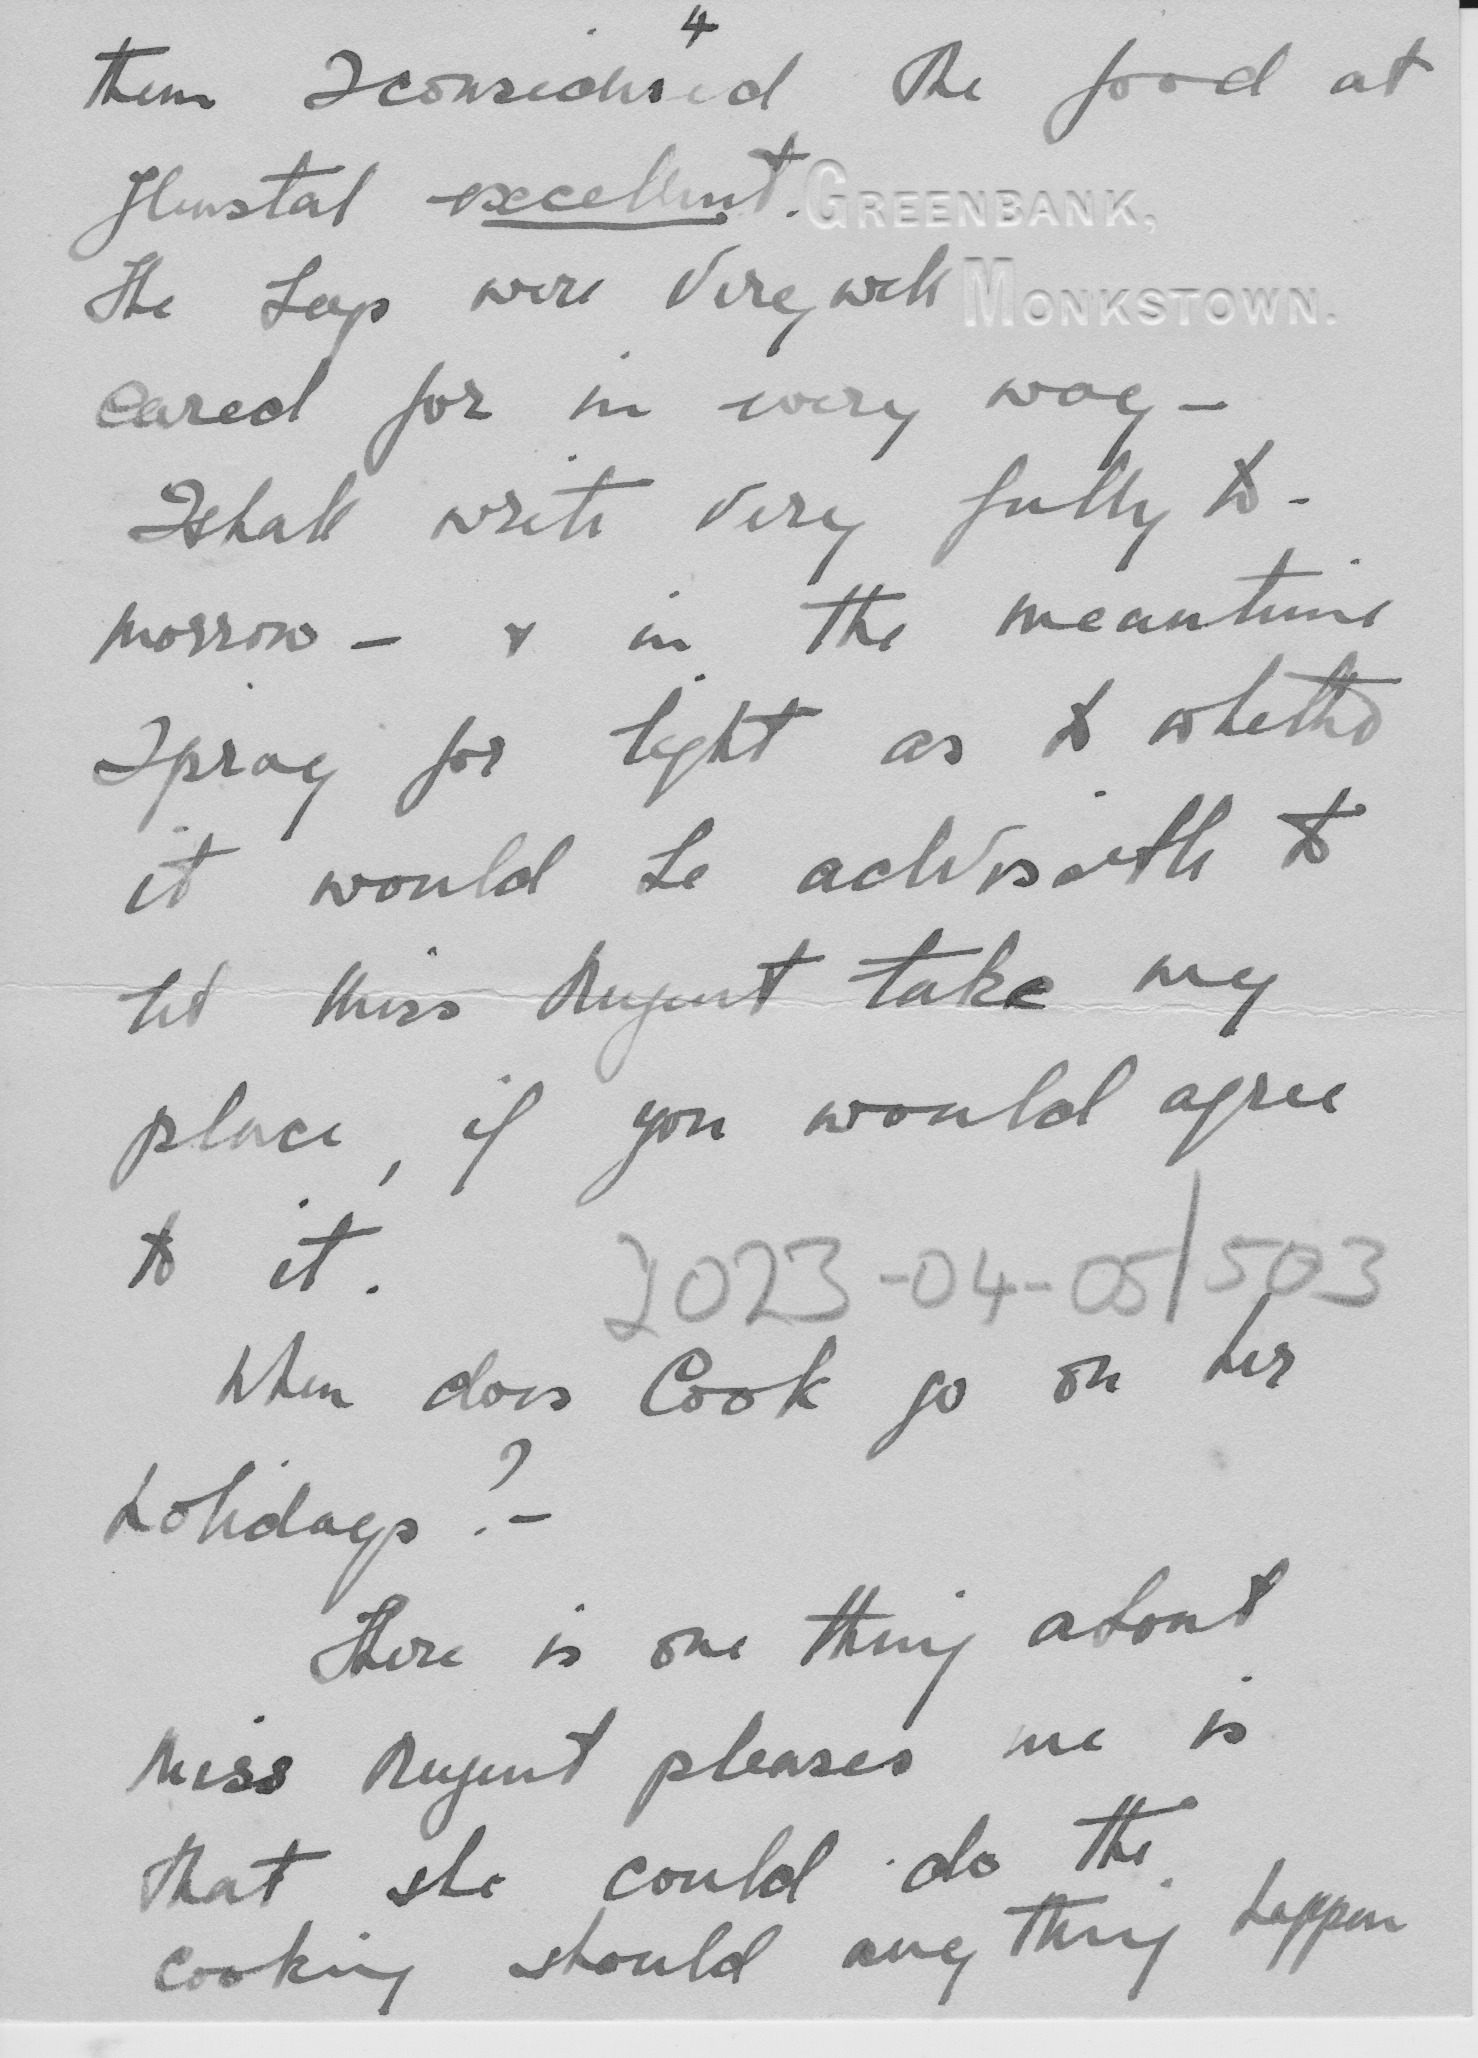 4
them I considered the food at
Glenstal excellent.
GREENBANK,
MONKSTOWN.
The boys were very well
cared for in every way -
I shall write very fully to-
morrow - & in the meantime
I pray for light as to whether
it would be advisable to
let Miss Nugent take my
place, if you would agree
to it.
2023-04-05/503
When does Cook go on her
holidays? -
There is one thing about
Miss Nugent pleases me is
that she could do the
cooking should any thing happen